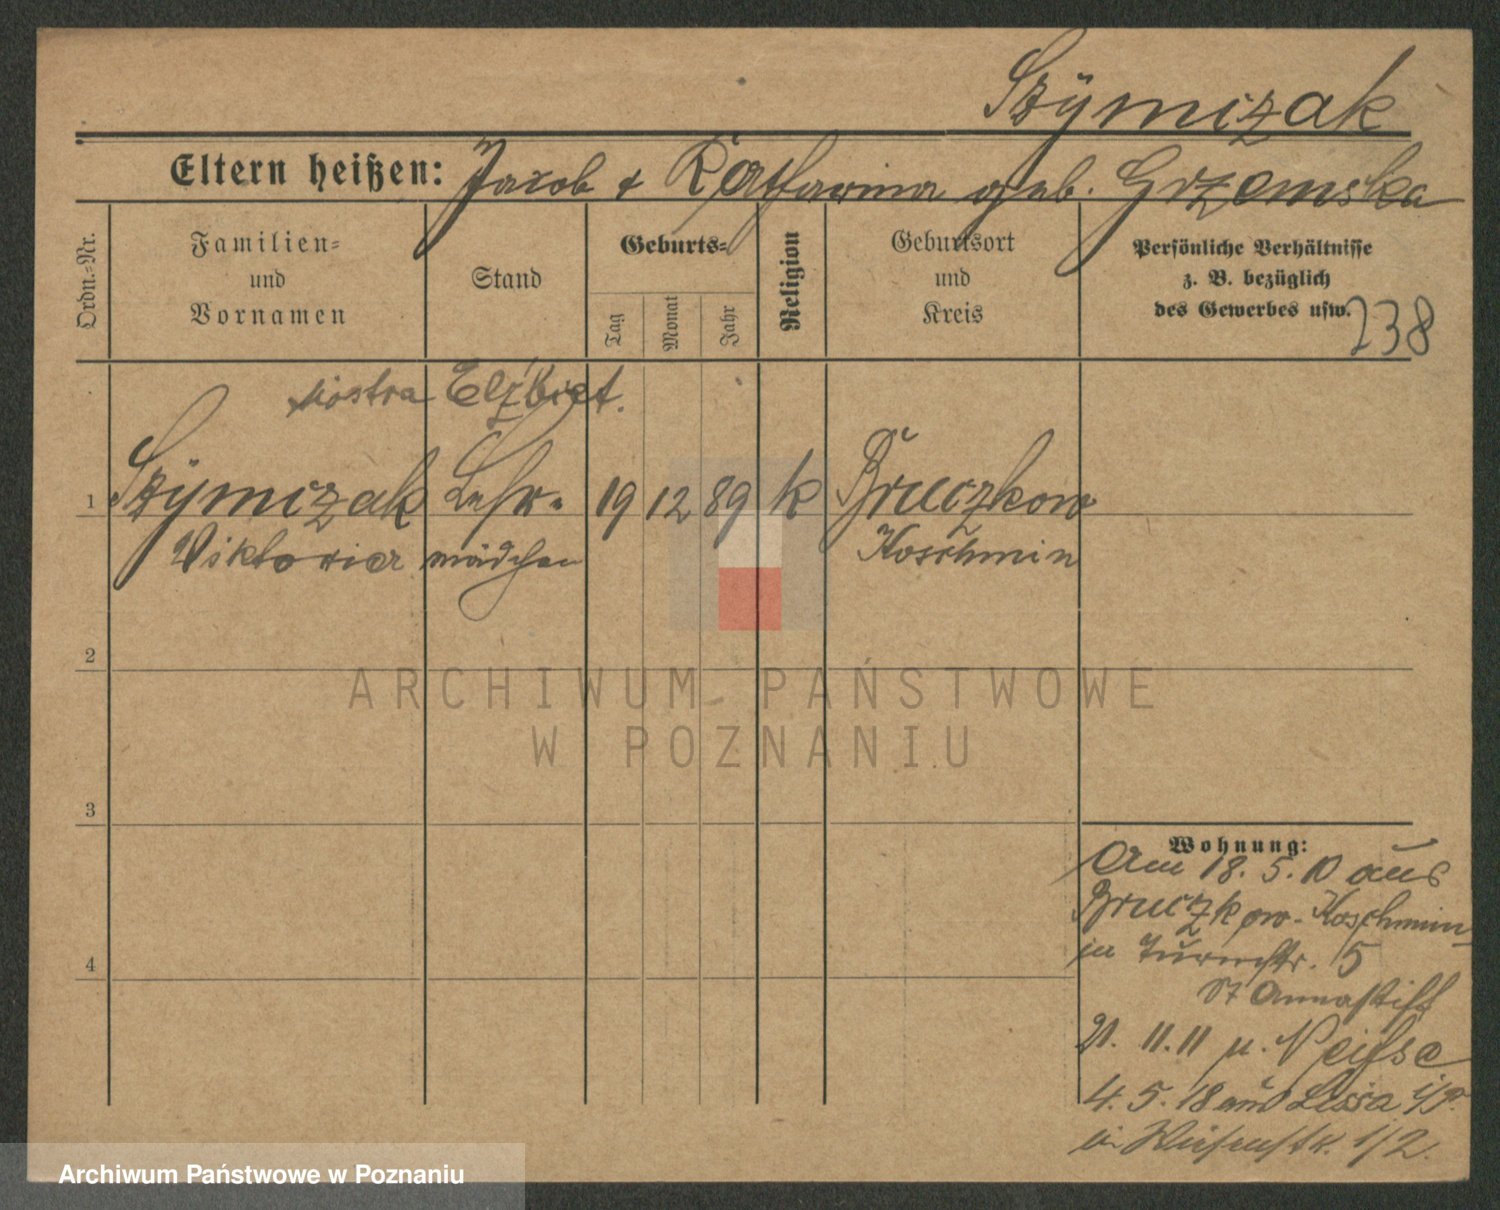 Szÿmczak
Eltern heißen: Jacob & Katharina geb. Grzemska
Ordn.-Nr.
Familien- und Vornamen
Stand
Geburts-
Tag
Monat
Jahr
Religion
Geburtsort und Kreis
Persönliche Verhältnisse
z. B. bezüglich
des Gewerbes usw.
238
siostra Elżbiet.
1 Szÿmczak Lehr- 19 12 89 k Bruczkow
Viktoria mädchen Koschmin
2
3
4
Wohnung:
Am 18. 5. 10 aus
Bruczkow-Koschmin
in Turmstr. 5
St Annastift
21. 11. 11 n. Neisse
4. 5. 18 aus Lissa i/P.
in Wiesenstr. 1/2.
ARCHIWUM PAŃSTWOWE
W POZNANIU
Archiwum Państwowe w Poznaniu